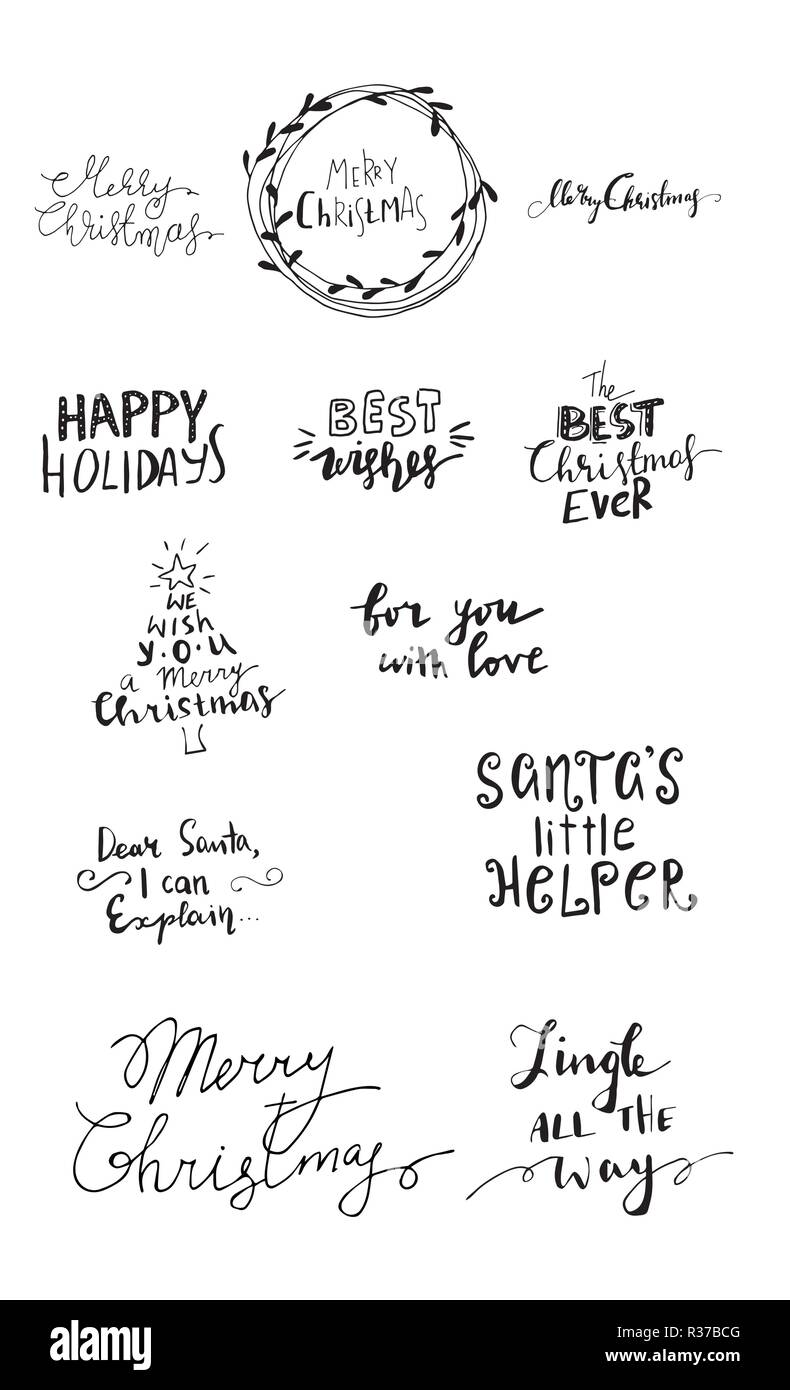 Merry
Christmas
MERRY
ChRiStMAS
Merry Christmas
HAPPY
HOLIDAYS
BEST
wishes
The
BEST
Christmas
EVER
WE
WISH
Y.O.U
a Merry
Christmas
for you
with love
Dear Santa,
I can
Explain...
SANTA'S
little
HELPER
Merry
Christmas
Jingle
ALL THE
way
alamy
Image ID: R37BCG
www.alamy.com